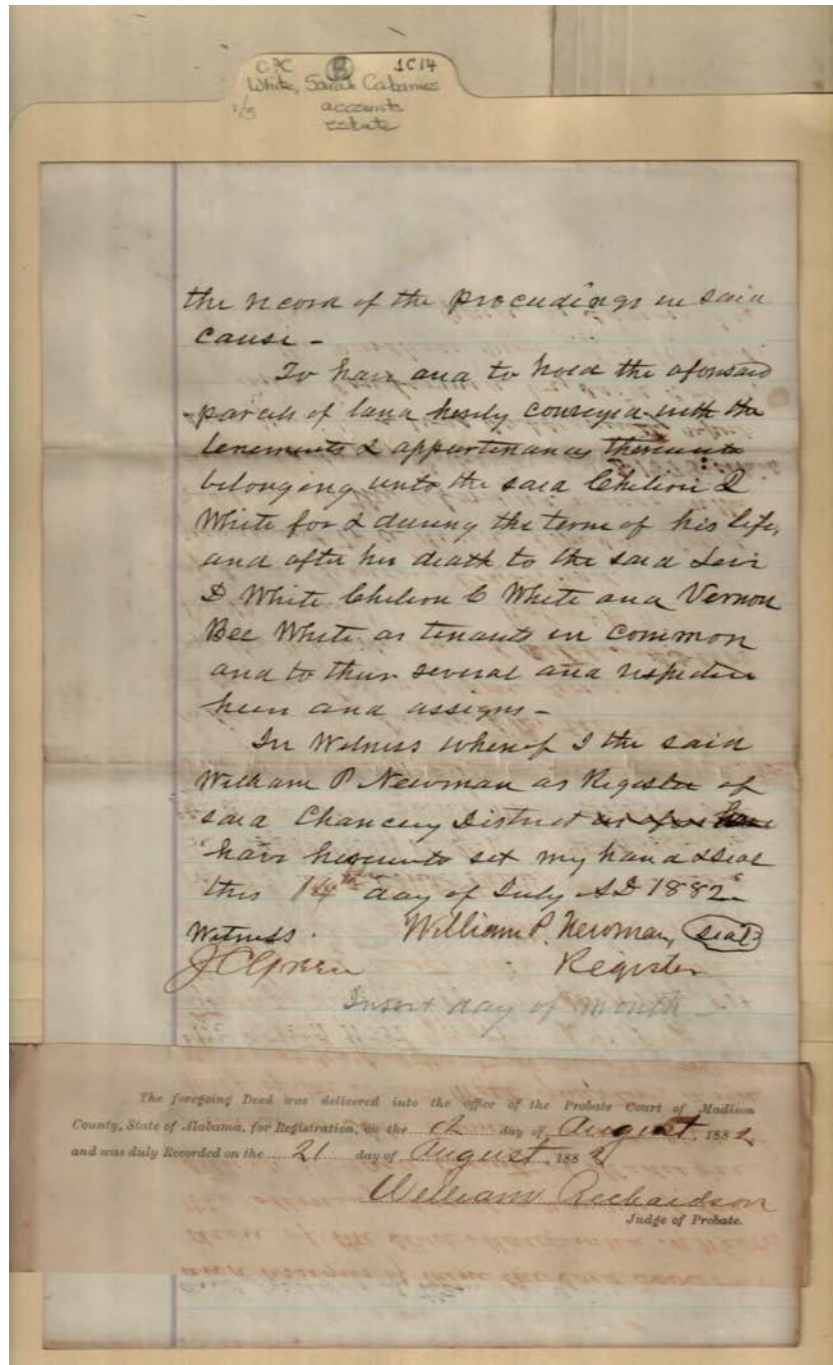 C & C B 1C14
White, Sarah Cabaniss
1/5 accounts
estate
the record of the proceedings in said
cause -
To have and to hold the aforesaid
parcels of land hereby conveyed with the
tenements & appurtenances thereunto
belonging unto the said Chelion D
White for & during the term of his life,
and after his death to the said Levi
D White Chelion C White and Vernon
Bee White as tenants in common
and to their several and respective
heirs and assigns -
In Witness whereof I the said
William P Newman as Register of
said Chancery District
have hereunto set my hand & seal
this 14th day of July AD 1882
Witness. William P. Newman, (Seal)
J C Green Register
Insert day of month -
The foregoing Deed was delivered into the office of the Probate Court of Madison
County, State of Alabama, for Registration, on the 12 day of August, 1882
and was duly Recorded on the 21 day of August, 1882
William Richardson
Judge of Probate.